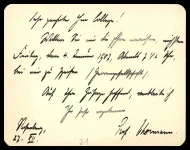 Sehr geehrter Herr College!
Wollen Sie mir die Ehre erweisen, nächsten
Freitag, den 4. Januar 1907, Abends ½ 8 Uhr,
bei mir zu speisen (Herrengesellschaft).
Auf Ihre Zusage hoffend, verbleibe ich
Ihr sehr ergebener
Prof.
27. XII.
21